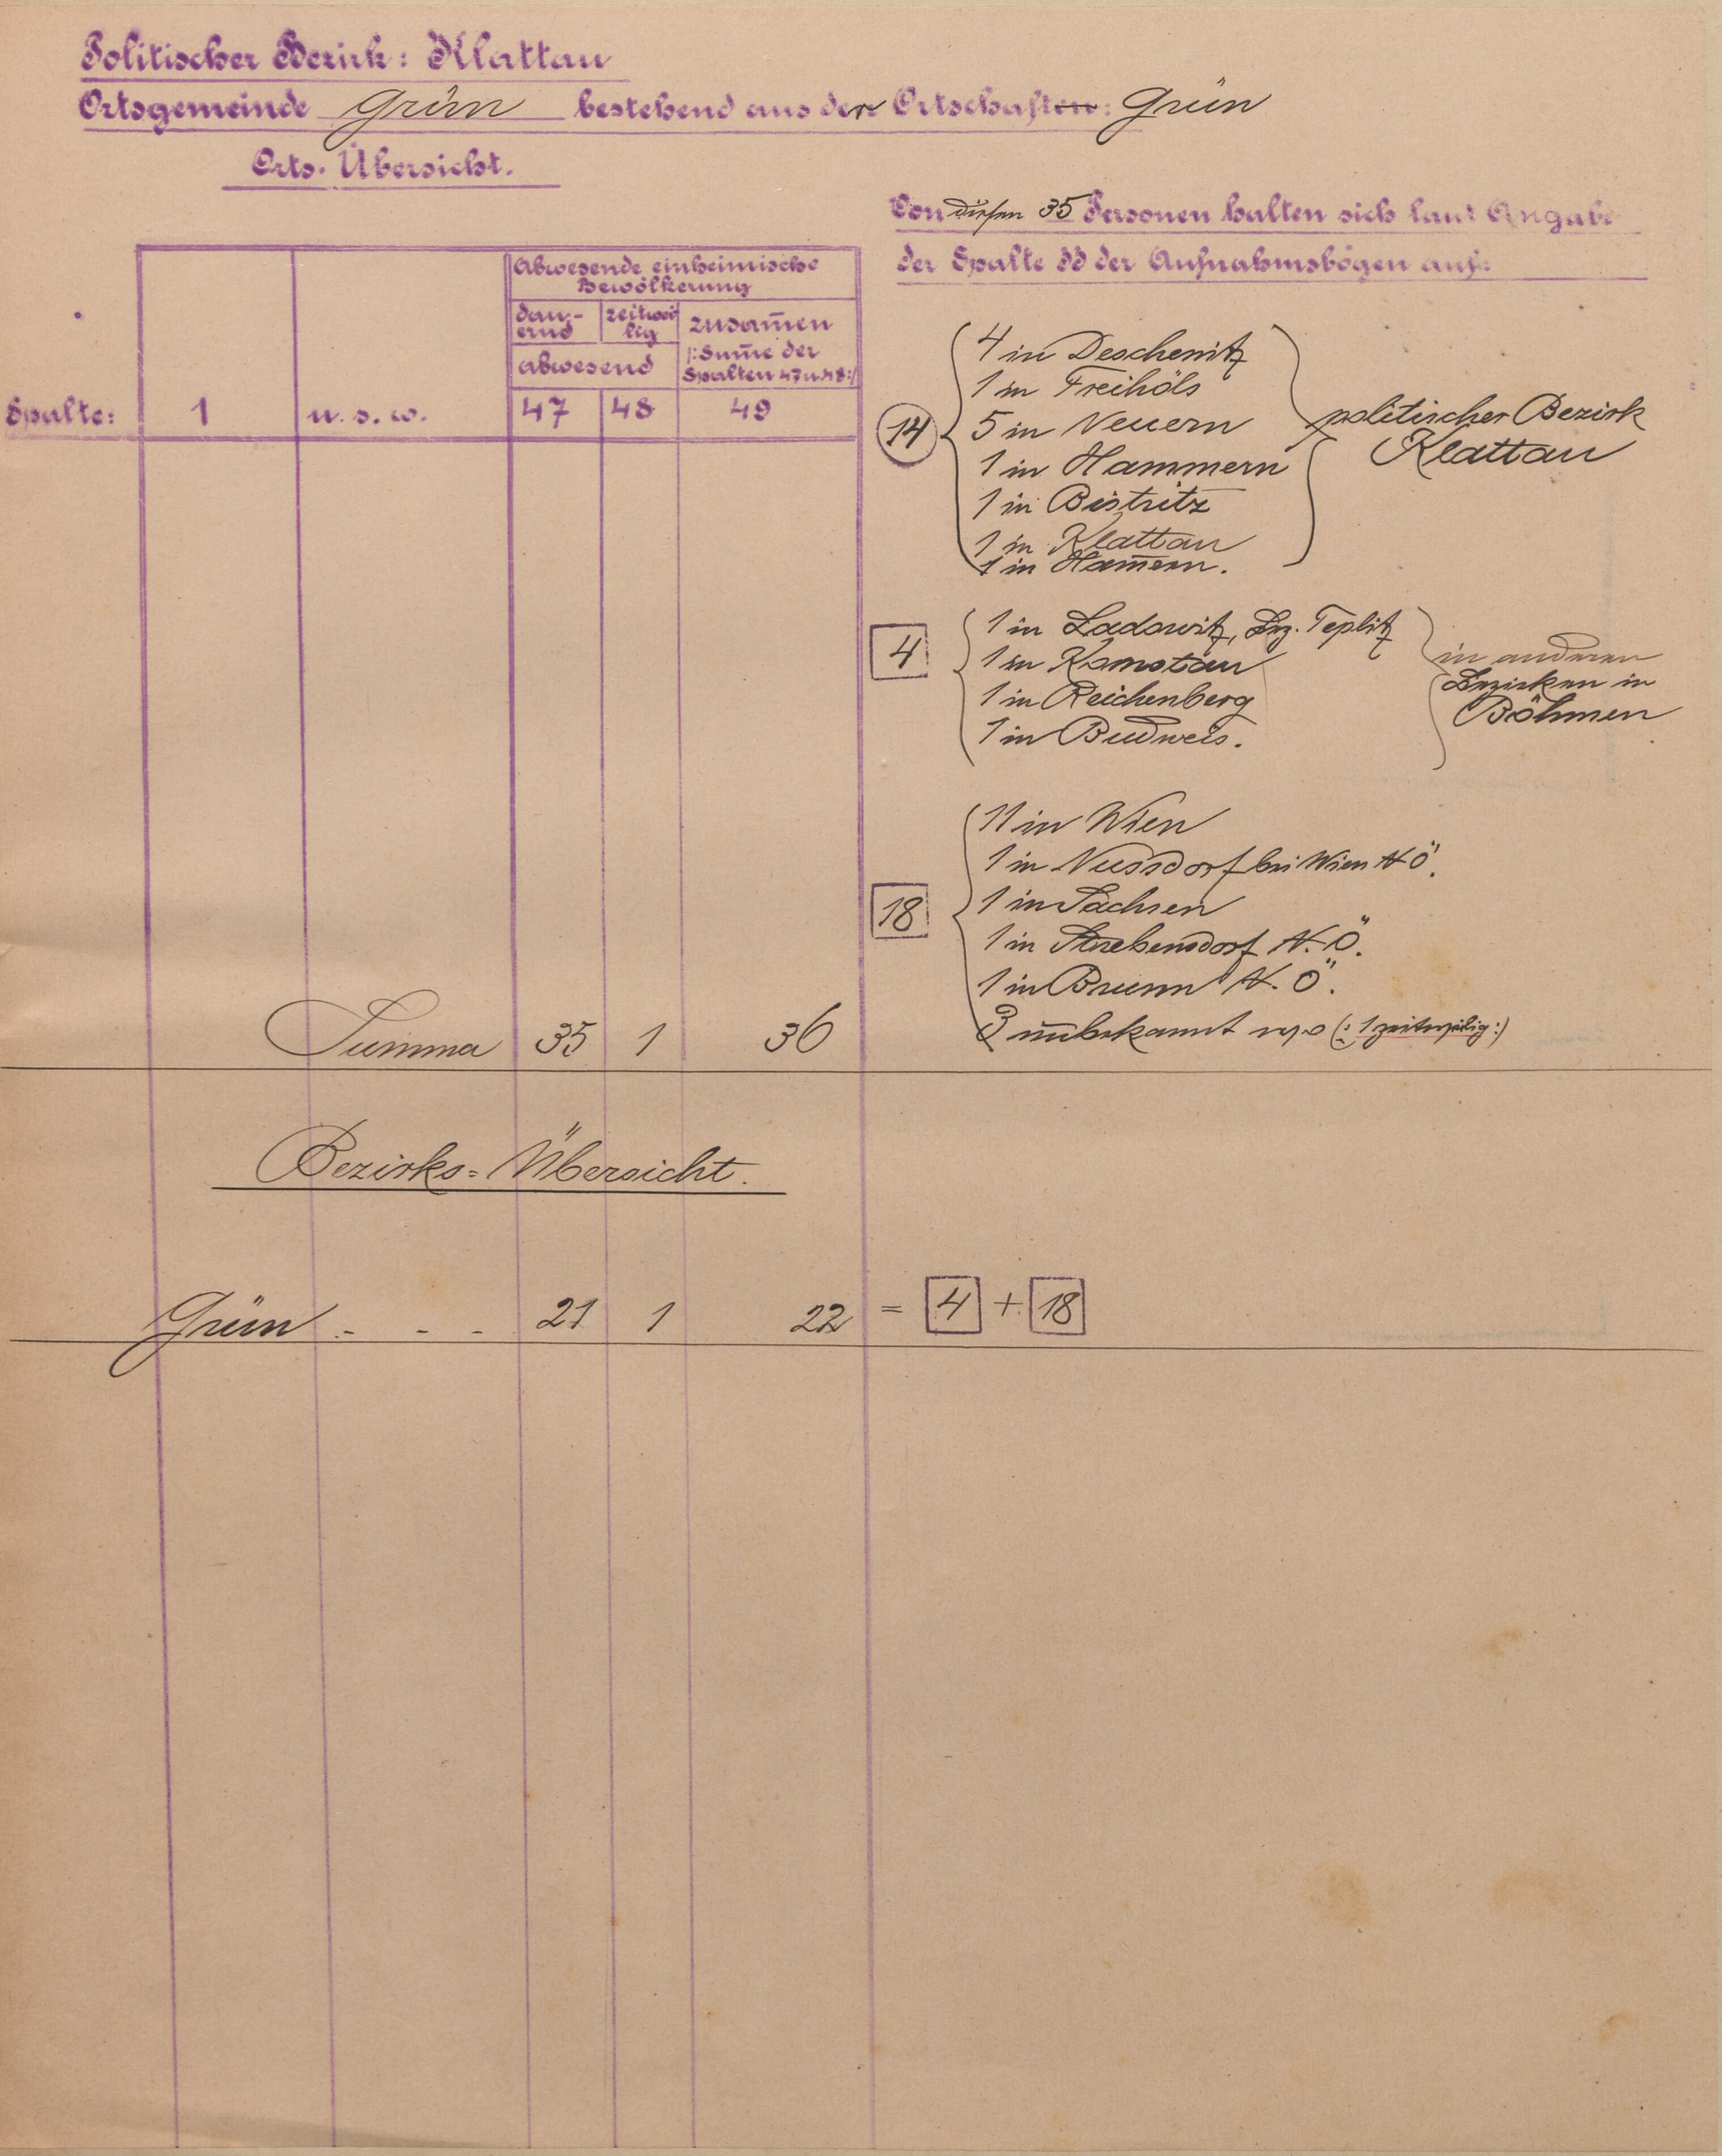 Politischer Bezirk: Klattau
Ortsgemeinde Grün bestehend aus der Ortschaften: Grün
Orts-Übersicht.
Von diesen 35 Personen halten sich laut Angabe
der Spalte dd der Aufnahmsbögen auf:
Abwesende einheimische
Bewölkerung
dau-
ernd
zeitwei
lig
zusam̄en
abwesend
/:Sum̄e der
Spalten 47 u. 48:/
Spalte: 1 u. s. w. 47 48 49
14
4 in Deschenitz
1 in Freihöls
5 in Neuern
1 in Hammern
1 in Bistritz
1 in Klattau
1 in Ham̄ern.
politischer Bezirk
Klattau
4
1 in Ladowitz, Bez. Teplitz
1 in Komotau
1 in Reichenberg
1 in Budweis.
in anderen
Bezirken in
Böhmen
18
11 in Wien
1 in Nussdorf bei Wien N Ö.
1 in Sachsen
1 in N. Ö.
1 in Brunn N. Ö.
3 unbekannt wo (: 1 zeitweilig :)
Summa 35 1 36
Bezirks-Übersicht.
Grün - - - 21 1 22 = 4 + 18